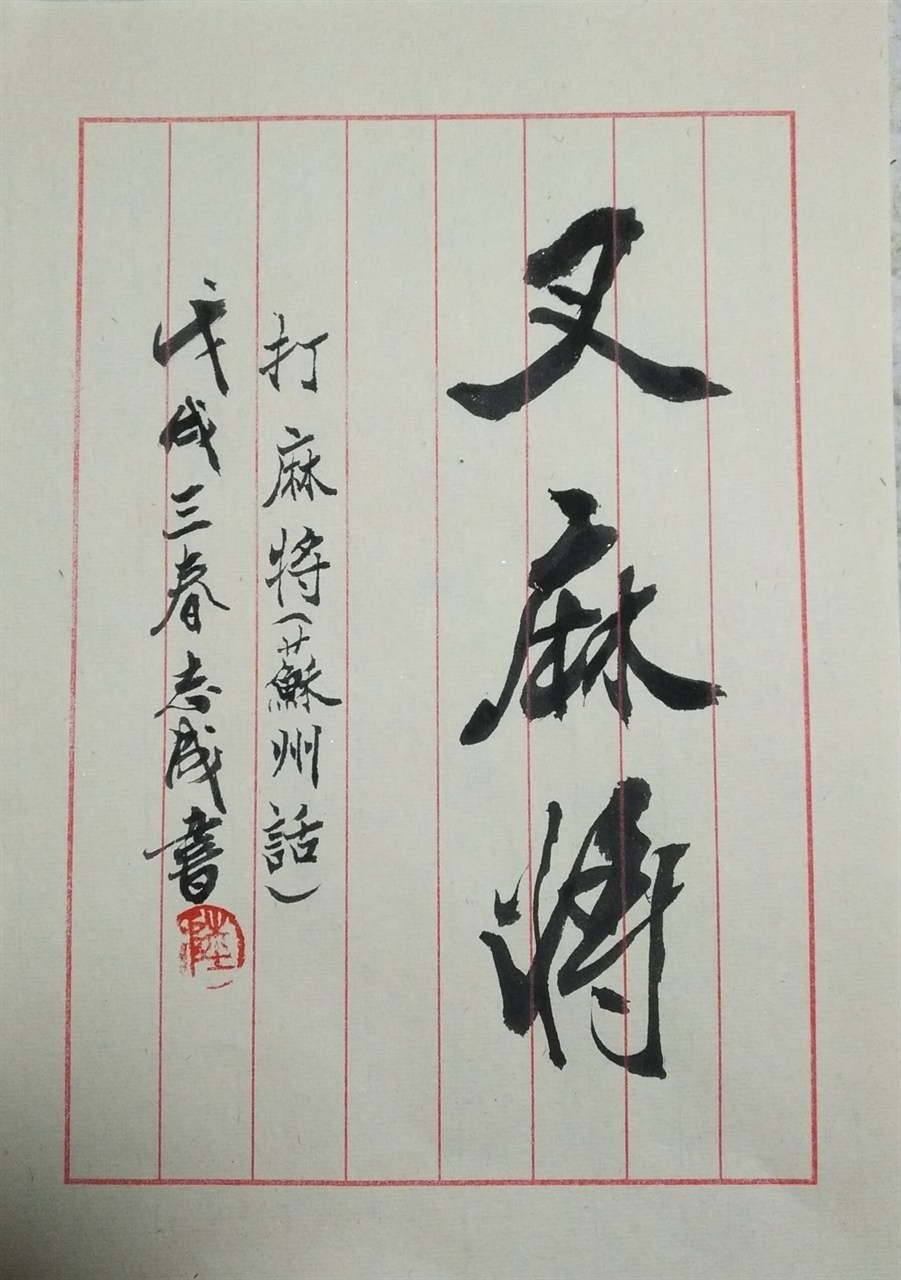 叉麻将
打麻将(蘇州話)
戊戌三春志成書
陸